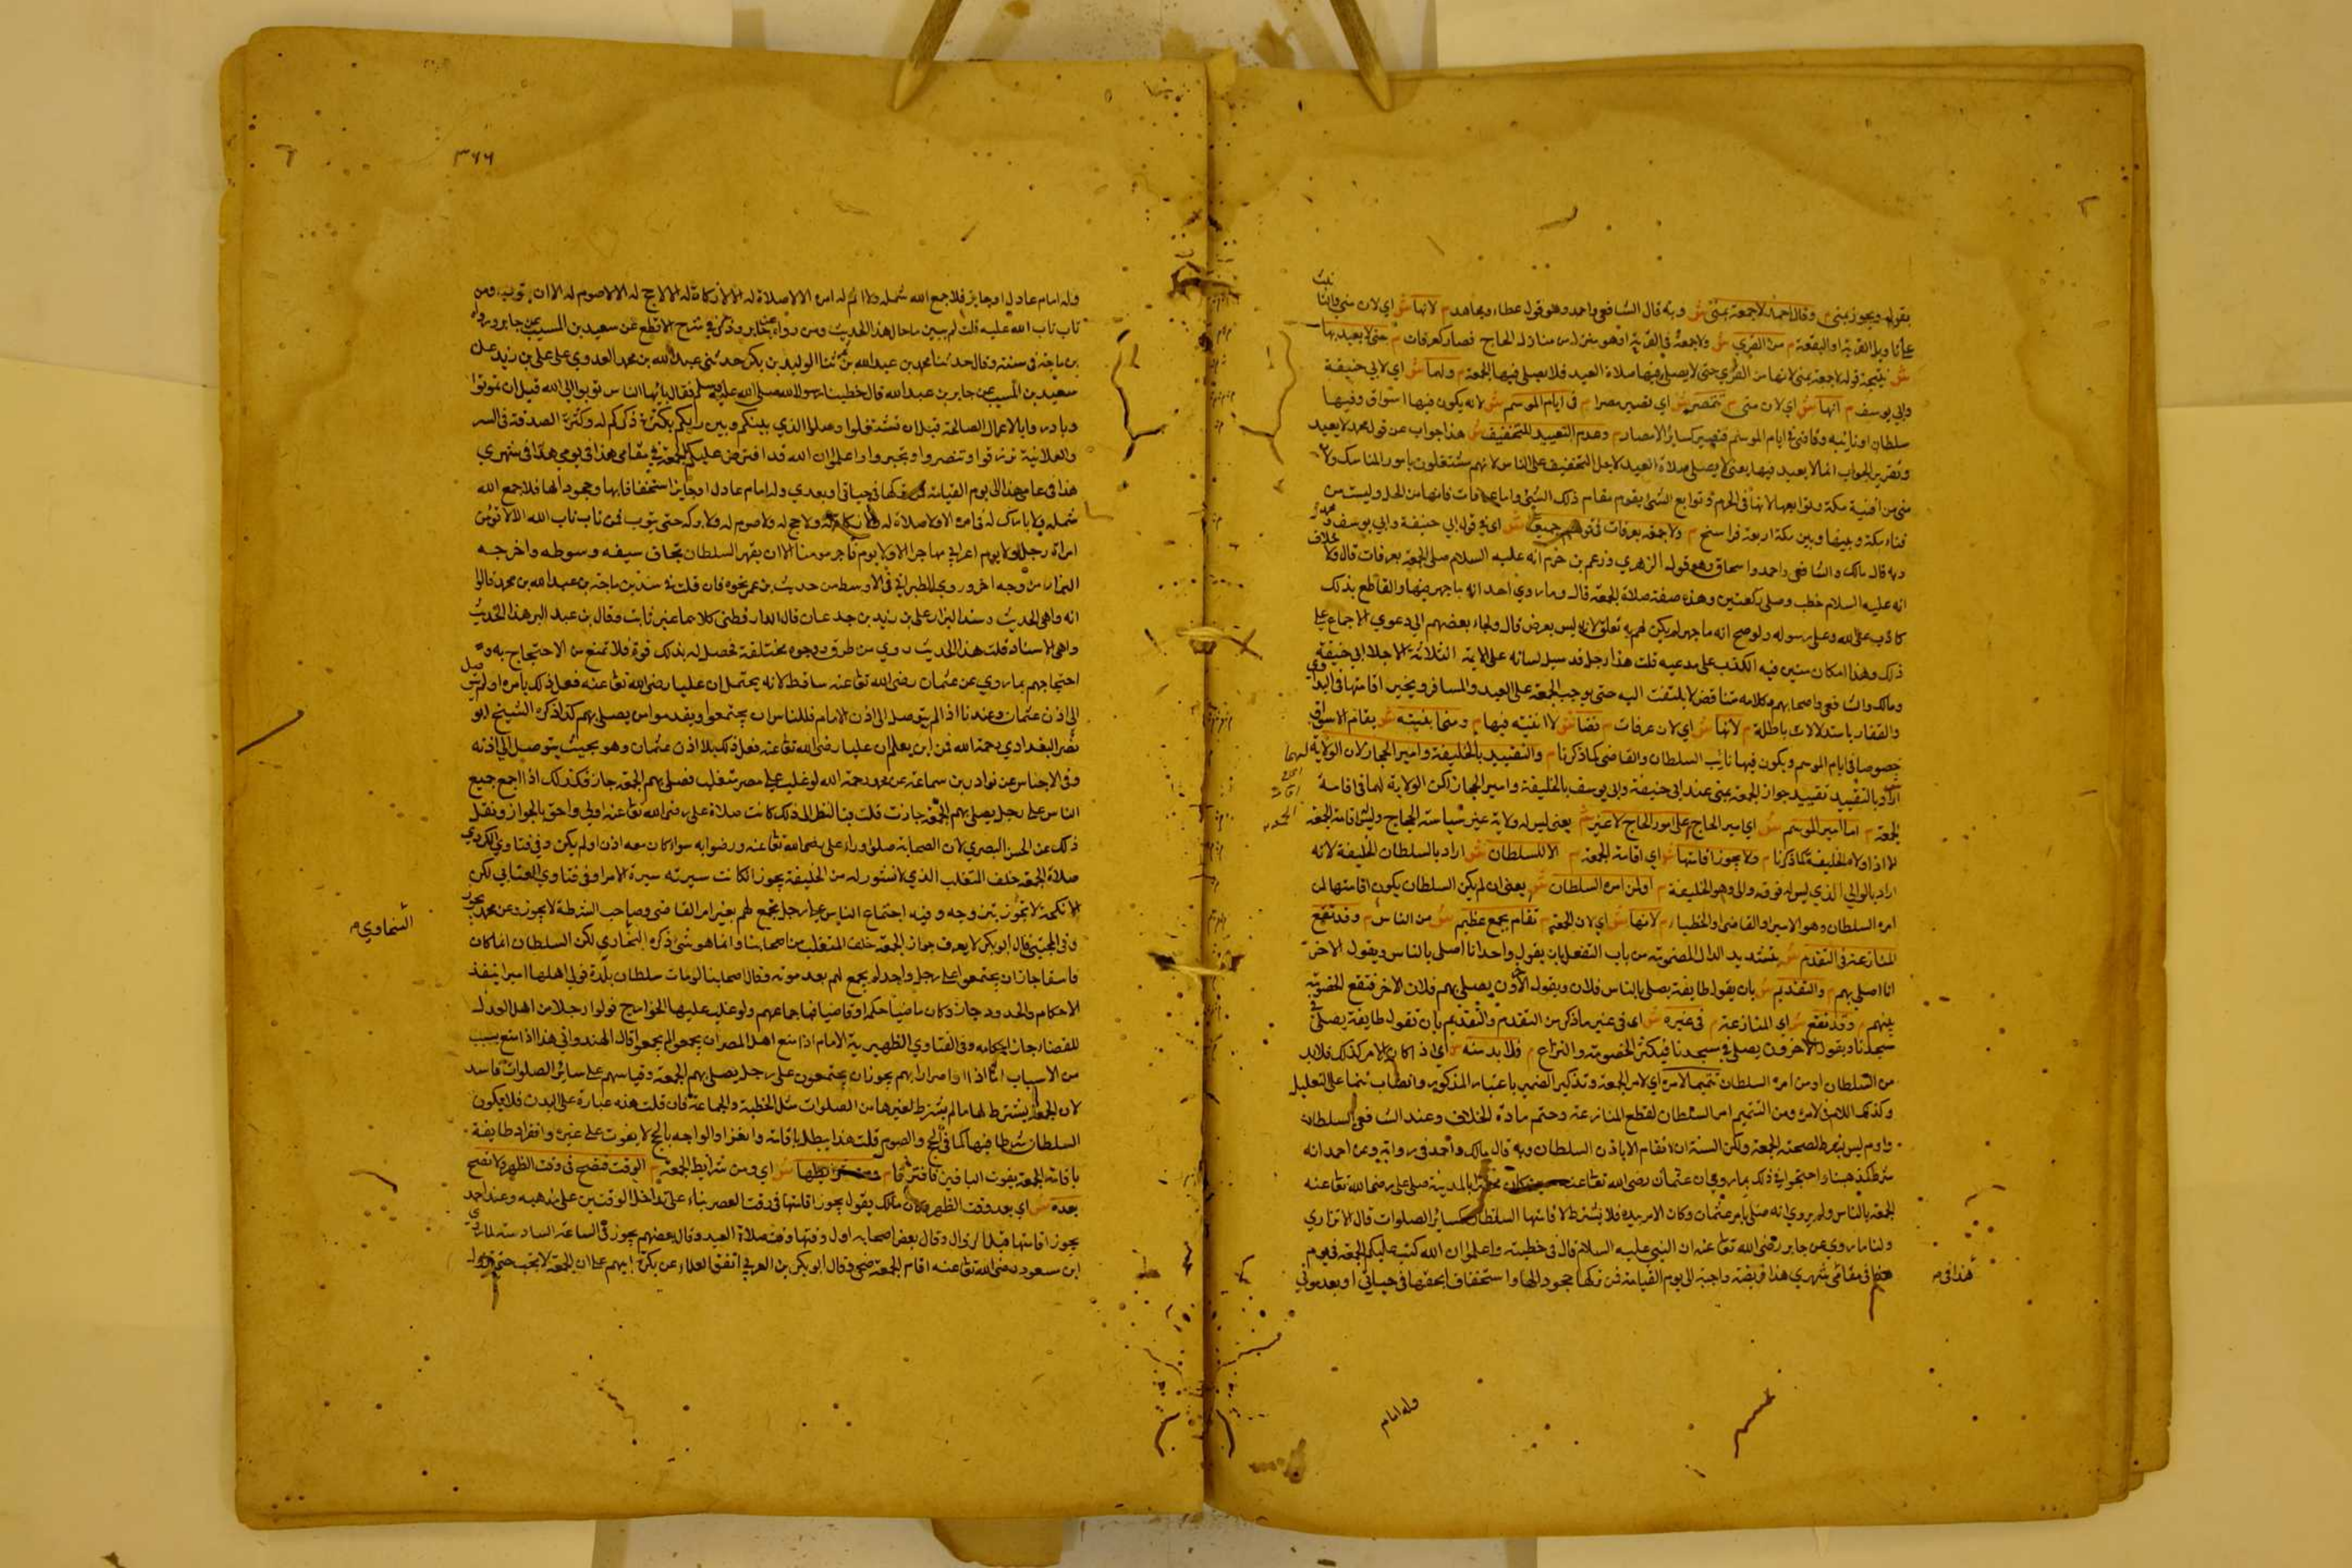 بقوله ويجوز بمنى م وقال احمد لا جمعة بمنى ش وبه قال الشافعي واحمد وهو قول عطاء ومجاهد م لانها ش اي لان منى
من القرى ش ولا جمعة في القرية او هو منزل من منازل الحاج فصار كعرفات م حتى لا يعيد بها
ش نتيجة قوله لا جمعة بمنى لانها من القرى حتى لا يصلى فيها صلاة العيد فلا يصلى فيها الجمعة م ولهما ش اي لابي حنيفة
وابي يوسف م انها ش اي لان منى م تتمصر ش اي تصير مصرا م في ايام الموسم ش لانه يكون فيها اسواق وفيها
سلطان او نايبه وقاضى في ايام الموسم فتصير كساير الامصار م وعدم التعييد للتخفيف ش هذا جواب عن قول محمد لا يعيد
وتقرير الجواب انما لا يعيد فيها يعني لا يصلى صلاة العيد لاجل التخفيف على الناس لانهم يشتغلون بامور المناسك
منى من افنية مكة وتوابعها لانها في الحرم وتوابع الشئ يقوم مقام ذلك الشئ واما عرفات فانها من الحل وليست من
فناء مكة وبينها وبين مكة اربعة فراسخ م ولا جمعة بعرفات في قولهم جميعا ش اي في قول ابي حنيفة وابي يوسف ومحمد
وبه قال مالك والشافعي واحمد واسحاق وهو قول الزهري وزعم بن حزم انه عليه السلام صلى الجمعة بعرفات قال ولا خلاف
انه عليه السلام خطب وصلى ركعتين وهذه صفة صلاة الجمعة قال وما روي احد انه ما جهر فيها والقاطع بذلك
كاذب على الله وعلى رسوله ولو صح انه ما جهر لم يكن لهم به تعلق لانه ليس بفرض قال ولجاء بعضهم الى دعوى الاجماع على
ذلك وهذا مكان منين فيه الكذب على مدعيه قلت هذا رجل قد سبل لسانه على الايمة الثلاثة الاجلاء ابي حنيفة
ومالك والشافعي واصحابهم وكلامه متناقض لا يلتفت اليه حتى يوجب الجمعة على العبيد والمسافر ويخير اقامتها في
والقفار باستدلالات باطلة م لانها ش اي لان عرفات م فضا ش لا ابنية فيها م ومنى ابنيته ش يقام الاسواق
خصوصا في ايام الموسم ويكون فيها نايب السلطان والقاضى كما ذكرنا م والتقييد بالخليفة وامير الحجاز لان الولاية لهما
اراد بالتقييد تقييد جواز الجمعة بمنى عند ابي حنيفة وابي يوسف بالخليفة وامير الحجاز لكن الولاية لهما في اقامة
الجمعة م اما امير الموسم ش اي امير الحاج م يلي امور الحاج لا غير ش يعني ليس له ولاية غير سياسة الحجاج وليس اقامة الجمعة
الا اذا ولاه الخليفة كما ذكرنا م ولا يجوز اقامتها ش اي اقامة الجمعة م الا للسلطان ش اراد بالسلطان الخليفة لانه
اراد بالوالي الذي ليس له فوقه والى وهو الخليفة م او لمن امره السلطان ش يعني ان لم يكن السلطان يكون اقامتها لمن
امره السلطان وهو الامير او القاضى او الخطباء م لانها ش اي لان الجمعة م تقام بجمع عظيم ش من الناس م وقد تقع
المنازعة في التقدم ش بتشديد الدال المضمومة من باب التفعل بان يقول واحد انا اصلى بالناس ويقول الاخر
انا اصلى بهم م والتقديم ش بان يقول طايفة يصلى بالناس فلان ويقول الاخرون يصلي بهم فلان الاخر فتقع الخصومة
بينهم م وقد تقع ش اي المنازعة م في غيره ش اي في غير ما ذكر من التقدم والتقديم بان تقول طايفة يصلى في
مسجدنا ويقول الاخرون يصلى في مسجدنا فيكثر الخصومة والنزاع م فلا بد منه ش اي اذا كان الامر كذلك فلا بد
من السلطان او من امره السلطان تتميما لامره اي لامر الجمعة وتذكير الضمير باعتبار المذكور وانتصاب تتميما على التعليل
وكذلك اللام في لامره ومن التتميم امر السلطان لقطع المنازعة وحتم مادة الخلاف وعند الشافعي السلطان
وامره ليس بشرط لصحة الجمعة ولكن السنة ان لا تقام الا باذن السلطان وبه قال مالك واحمد في رواية وعن احمد انه
شرط كمذهبنا واحتجوا في ذلك بما روي ان عثمان رضى الله تعا عنه حين كان محصورا بالمدينة صلى على رضى الله تعا عنه
الجمعة بالناس ولم يروي انه صلى بامر عثمان وكان الامر بيده فلا يشترط لاقامتها السلطان كساير الصلوات قال الاترازي
ولنا ما روي عن جابر رضى الله تعا عنه ان النبي عليه السلام قال في خطبته واعلموا ان الله كتب عليكم الجمعة في يوم
هذا في مقامي شهري هذا فريضة واجبة الى يوم القيامة فمن تركها جحودا لها واستخفافا بحقها في حياتي او بعد موتي
هذا في م
وله امام
٣٦٦
وله امام عادل او جاير فلا جمع الله شمله ولا اتم له امره الا لا صلاة له الا لا زكاة له الا لا حج له الا لا صوم له الا ان يتوب ومن
تاب تاب الله عليه قلت لم يبين ما حال هذا الحديث ومن رواه عن جابر وذكر في شرح الاقطع عن سعيد بن المسيب عن جابر ورواه
بن ماجة في سننه وقال حدثنا محمد بن عبد الله بن نمير ثنا الوليد بن بكر حدثني عبد الله بن محمد العدوي عن علي بن زيد عن
سعيد بن المسيب عن جابر بن عبد الله قال خطبنا رسول الله صلى الله عليه وسلم فقال يا ايها الناس توبوا الى الله قبل ان تموتوا
وبادروا بالاعمال الصالحة قبل ان تشتغلوا وصلوا الذي بينكم وبين ربكم بكثرة ذكركم له وكثرة الصدقة في السر
والعلانية ترزقوا وتنصروا وتجبروا واعلموا ان الله قد افترض عليكم الجمعة في مقامي هذا في يومي هذا في شهري
هذا في عامي هذا الى يوم القيامة فمن تركها في حياتي او بعدي وله امام عادل او جاير استخفافا بها وجحودا لها فلا جمع الله
شمله ولا بارك له في امره الا ولا صلاة له ولا زكاة له ولا حج له ولا صوم له ولا بركة حتى يتوب فمن تاب تاب الله الا لا تؤمن
امراة رجلا ولا يوم اعرابي مهاجرا الا ولا يوم فاجر مومنا الا ان يقهر السلطان يخاف سيفه وسوطه واخرجه
البزار من وجه اخر وروي الطبراني في الاوسط من حديث بن عمر نحوه فان قلت في سند بن ماجة بن عبد الله بن محمد قالوا
انه واهى الحديث وسند البزار علي بن زيد بن جدعان قال الدارقطني كلاهما غير ثابت وقال بن عبد البر هذا الحديث
واهى الاسناد قلت هذا الحديث روي من طرق ووجوه مختلفة تحصل له بذلك قوة فلا تمنع من الاحتجاج به
احتجاجهم بما روي عن عثمان رضى الله تعا عنه ساقط لانه يحتمل ان عليا رضى الله تعا عنه فعل ذلك بامره او لم يتوصل
الى اذن عثمان وعندنا اذا لم يتوصل الى اذن الامام فللناس ان يجتمعوا ويقدموا من يصلى بهم كذا ذكره الشيخ ابو
نصر البغدادي رحمة الله فمن اين يعلم ان عليا رضى الله تعا عنه فعل ذلك بلا اذن عثمان وهو بحيث يتوصل الى اذنه
وفي الاجناس عن نوادر بن سماعة عن محمد رحمة الله لو غلب على مصر متغلب فصلى بهم الجمعة جاز فكذلك اذا اجمع جميع
الناس على رجل يصلى بهم الجمعة جازت قلت فبالنظر الى ذلك كانت صلاة علي رضى الله تعا عنه اولى واحق بالجواز ونقل
ذلك عن الحسن البصري لان الصحابة صلوا وراء علي رضى الله تعا عنه ورضوا به سواء كان معه اذن او لم يكن وفي فتاوي الكردي
صلاة الجمعة خلف المتغلب الذي لا منشور له من الخليفة يجوز اذا كانت سيرته سيرة الامرا وفي فتاوي العتابي لكن
الانكحة لا تجوز بتزوجه وفيه اجتماع الناس على رجل يجمع لهم بغير امر القاضى وصاحب الشرطة لا يجوز وعن محمد يجوز
وفي المجتبى قال ابو بكر لا يعرف جواز الجمعة خلف المتغلب من اصحابنا وانما هو شئ ذكره الطحاوي لكن السلطان اذا كان
فاسقا جاز ان يجتمعوا على رجل واحد لم يجمع لهم بعد موته وقال اصحابنا لو مات سلطان بلدة فولى اهلها اميرا ينفذ
الاحكام والحدود جاز وكان ماضيا حكما وقاضيا باجماعهم ولو غلب عليها الخوارج فولوا رجلا من اهل العدل
للقضاء جاز احكامه وفي الفتاوي الظهيرية الامام اذا منع اهل المصر ان يجمعوا لم يجمعوا قال الهندواني هذا اذا منع بسبب
من الاسباب اما اذا اضرارا بهم يجوز ان يجتمعون على رجل يصلى بهم الجمعة وقياسهم على ساير الصلوات فاسد
لان الجمعة يشترط لها ما لم يشترط لغيرها من الصلوات مثل الخطبة والجماعة فان قلت هذه عبارة على البدن فلا يكون
السلطان شرطا فيها كما في الحج والصوم قلت هذا يبطل باقامة والواجب بالحج لا يفوت على غيره وانفراد طايفة
باقامة الجمعة يفوت الباقين فافترقا م ومن شرايطها ش اي ومن شرايط الجمعة م الوقت فتصح في وقت الظهر ولا تصح
بعده ش اي بعد وقت الظهر وكان مالك يقول يجوز اقامتها في وقت العصر بناء على تداخل الوقتين على مذهبه وعند احمد
يجوز اقامتها قبل الزوال وقال بعض اصحابه اول وقتها وقت صلاة العيد وقال بعضهم يجوز في الساعة السادسة
ابن مسعود رضى الله تعا عنه اقام الجمعة ضحى وقال ابو بكر بن العربي اتفق العلماء عن بكرة ابيهم على ان الجمعة لا تجب حتى تزول